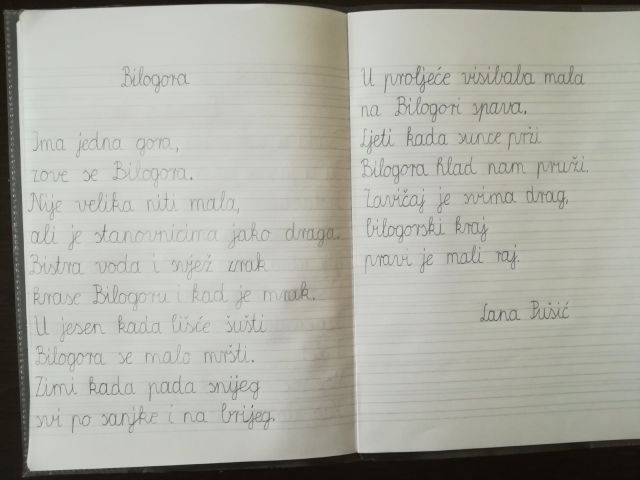 Bilogora
Ima jedna gora,
zove se Bilogora.
Nije velika niti mala,
ali je stanovnicima jako draga.
Bistra voda i svjež zrak
krase Bilogoru i kad je mrak.
U jesen kada lišće šušti
Bilogora se malo mršti.
Zimi kada pada snijeg
svi po sanjke i na brijeg.
U proljeće visibaba mala
na Bilogori spava.
Ljeti kada sunce prži
Bilogora hlad nam pruži.
Zavičaj je svima drag,
bilogorski kraj
pravi je mali raj.
Lana Pušić